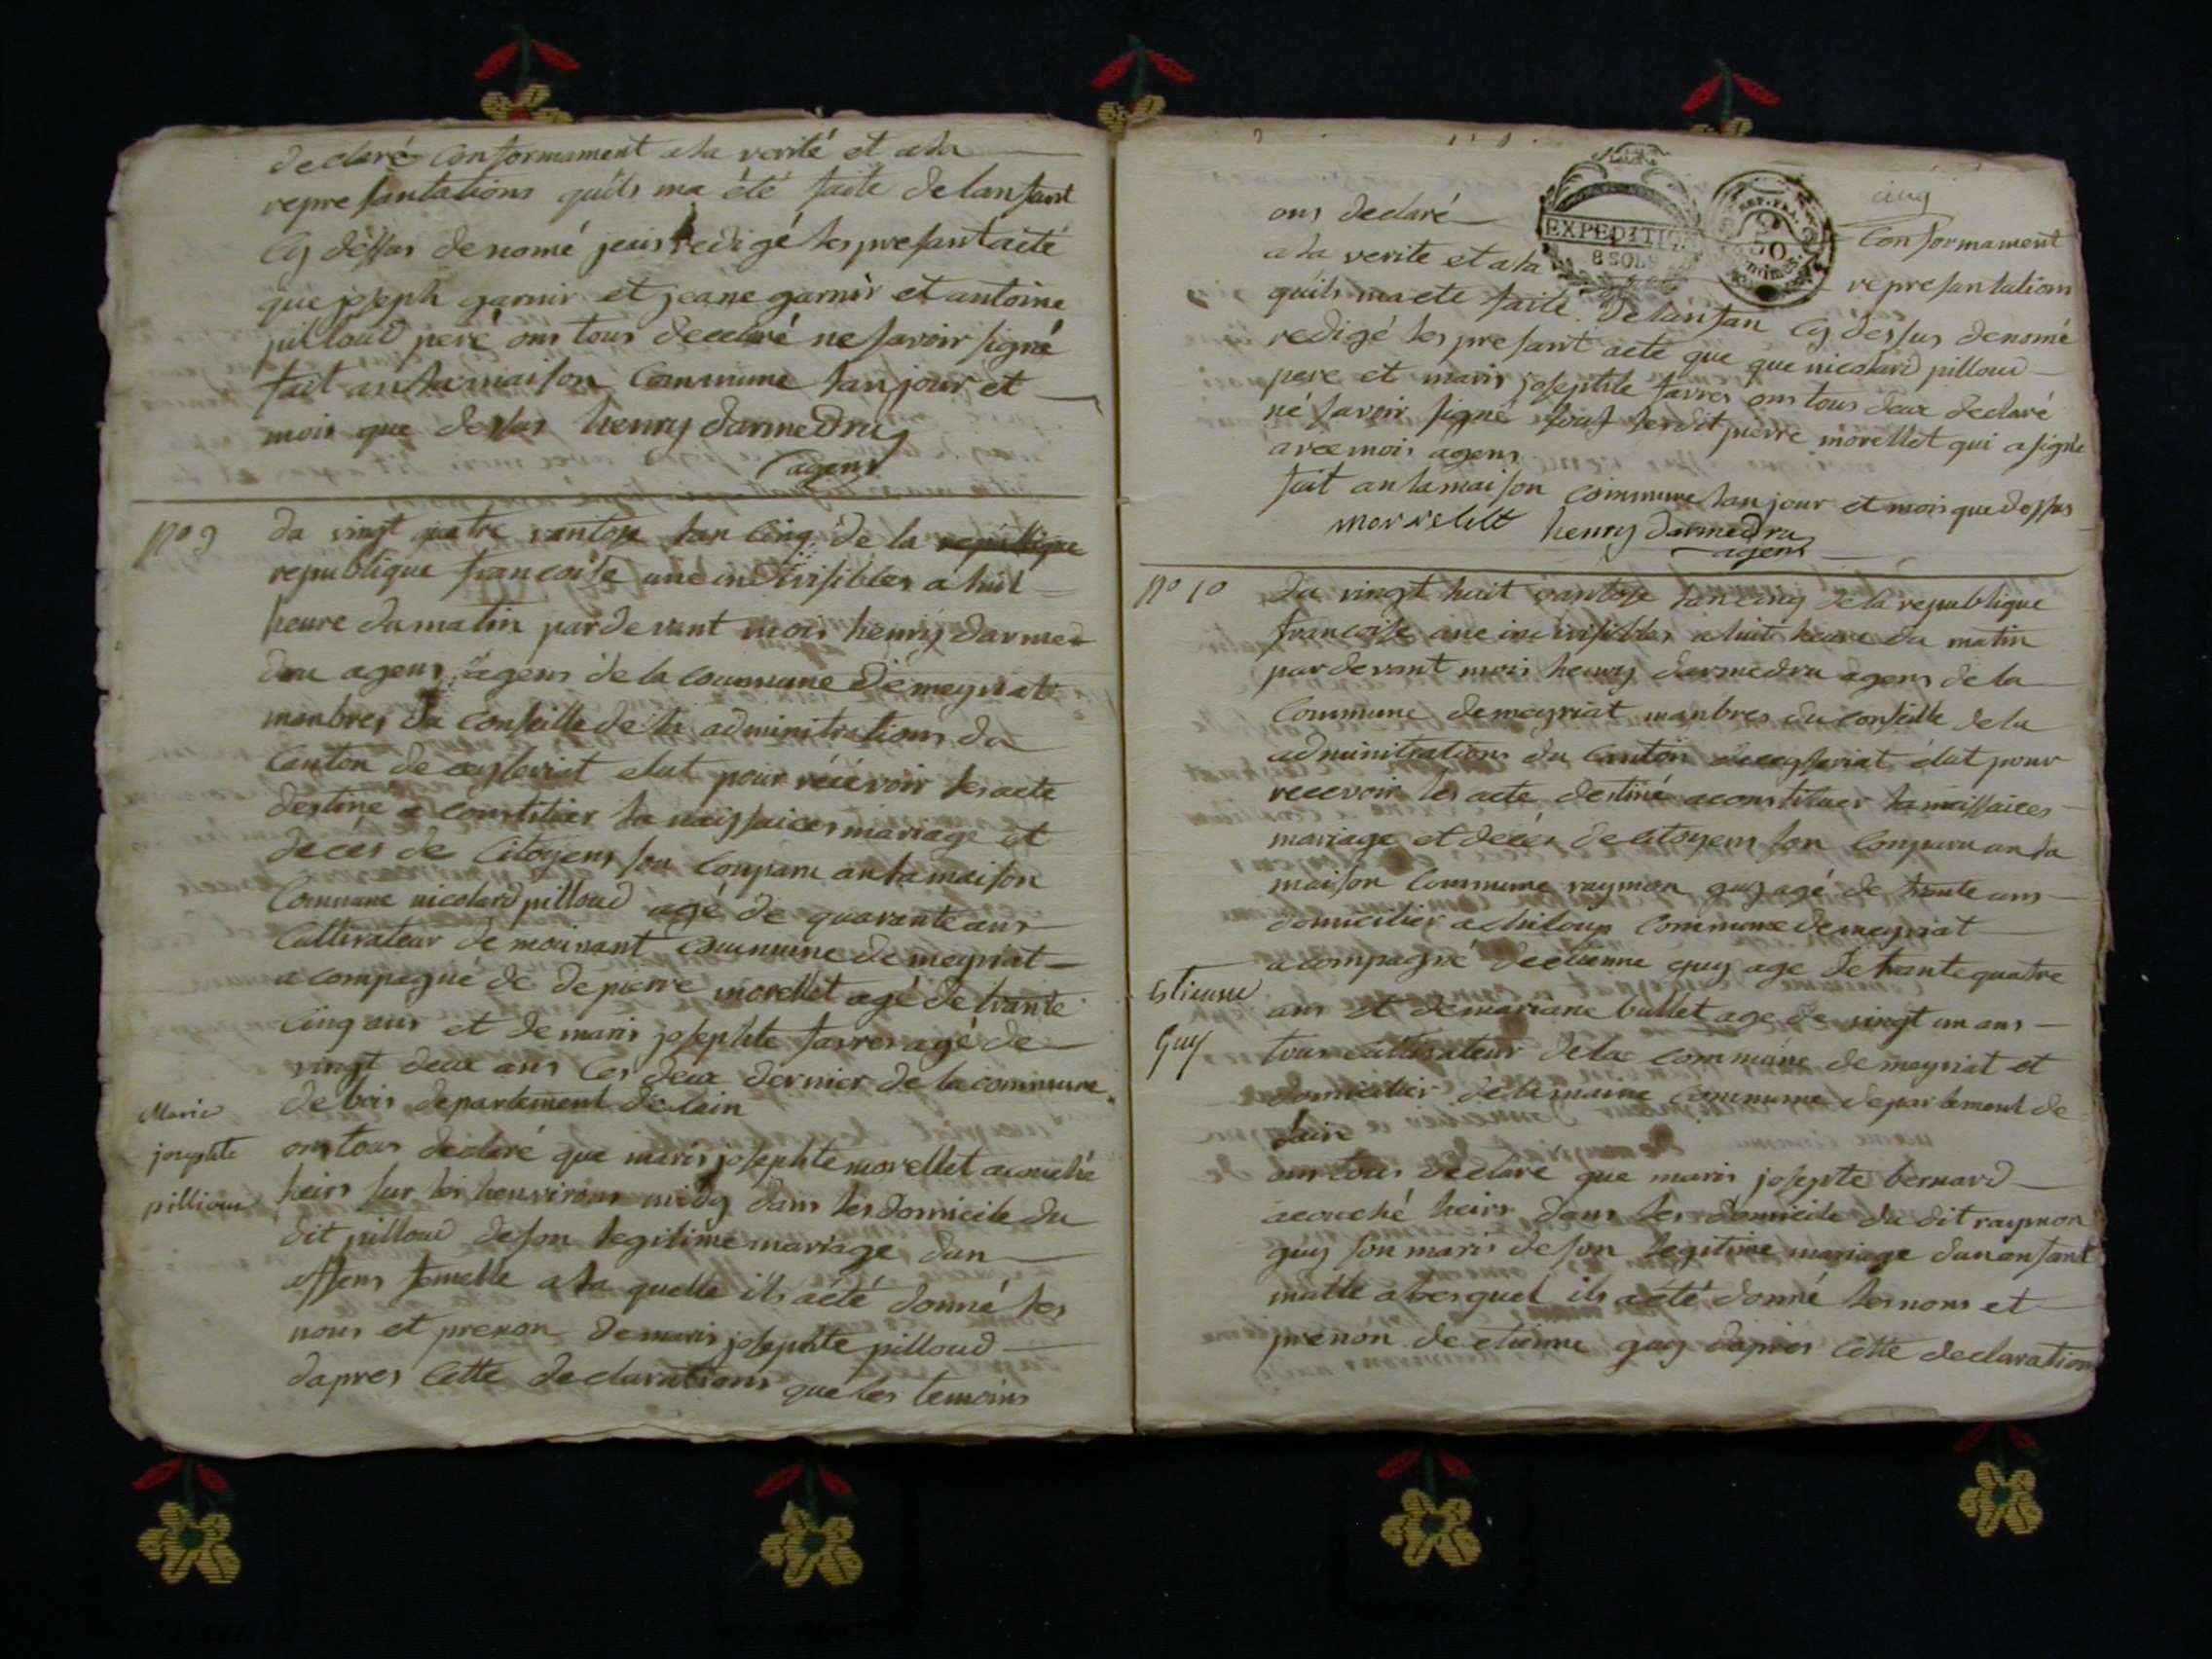 declaré Conformament a la verité et a la
representations quils ma été faite de lanfant
Cy dessus denomé jeuis redigé les presant acte
que joseph garnir et jeane garnir et antoine
pilloud peré ons tous declaré ne savoir signé
fait an la maison Commune lan jour et
mois que dessus henry darmedru
agens
no 9 du vingt quatre vantose lan Cinq de la republique
republique francoise une indivisibles a huit
heure du matin par devant mois henry darme
dru agens agens de la Commune de meyriat
manbres du Conseille de la adminitrations du
Canton de ceyseriat elut pour récévoir les acte
destine a constituer la naissaices mariage et
decés de Citoyens son Comparu an la maison
Commune nicolard pilloud agé de quarante ans
Cultivateur de moinant commune de meyriat
acompagné de de pierre morellet agé de trante
Cinq ans et de maris josephte favres agé de
vingt deux ans Ces deux dernier de la commune
de bois departement de lain
Marie
josephte
pilliou
ons tous declaré que maris josephte morellet acouché
heirs sur les henvirons midy dans les domicile du
dit pilloud de son legitime mariage dun
affens femelle a la quelle ils a été donné les
nons et prenon de maris josephte pilloud
dapres Cette declarations que les temoins
cinq
ons declaré Conformament
a la verite et a la representations
EXPEDITION
8 SOLS
REP. FRA.
50
quils ma ete faite de lanfan Cy dessus denomé
redigé les presant acte que que nicolard pilloud
pere et maris josephte favres ons tous deux declaré
né savoir signé souf lesdit pierre morellet qui a signé
avec mois agens
fait an la maison Commune lan jour et mois que dessus
morrelelt henry darmedru
agens
no 10 du vingt huit vantose lan cinq de la republique
francoise une indivisibles a huite heure du matin
par devant mois henry darmedru agens de la
Commune de meyriat manbres du conseille de la
adminitrations du Canton de ceyseriat élut pour
recevoir les acte destiné a constituer la naissaices
mariage et décés de citoyens son Comparu an la
maison Commune raymon guy agé de trante ans
domicilier a chiloup Commune de meyriat
acompagné de etienne guy age de trante quatre
Estienne
Guy
ans et de mariane bullet age de vingt un ans
tous cultivateur de la commune de meyriat et
domicilier de la maime commune departement de
lain
ons tous declare que maris josepte bernard
acouché heirs dans les domicile du dit raymon
guy son maris de son legitime mariage dun anfant
malle a lesquel ils a été donné les nons et
prenon de etienne guy dapres Cette declaration